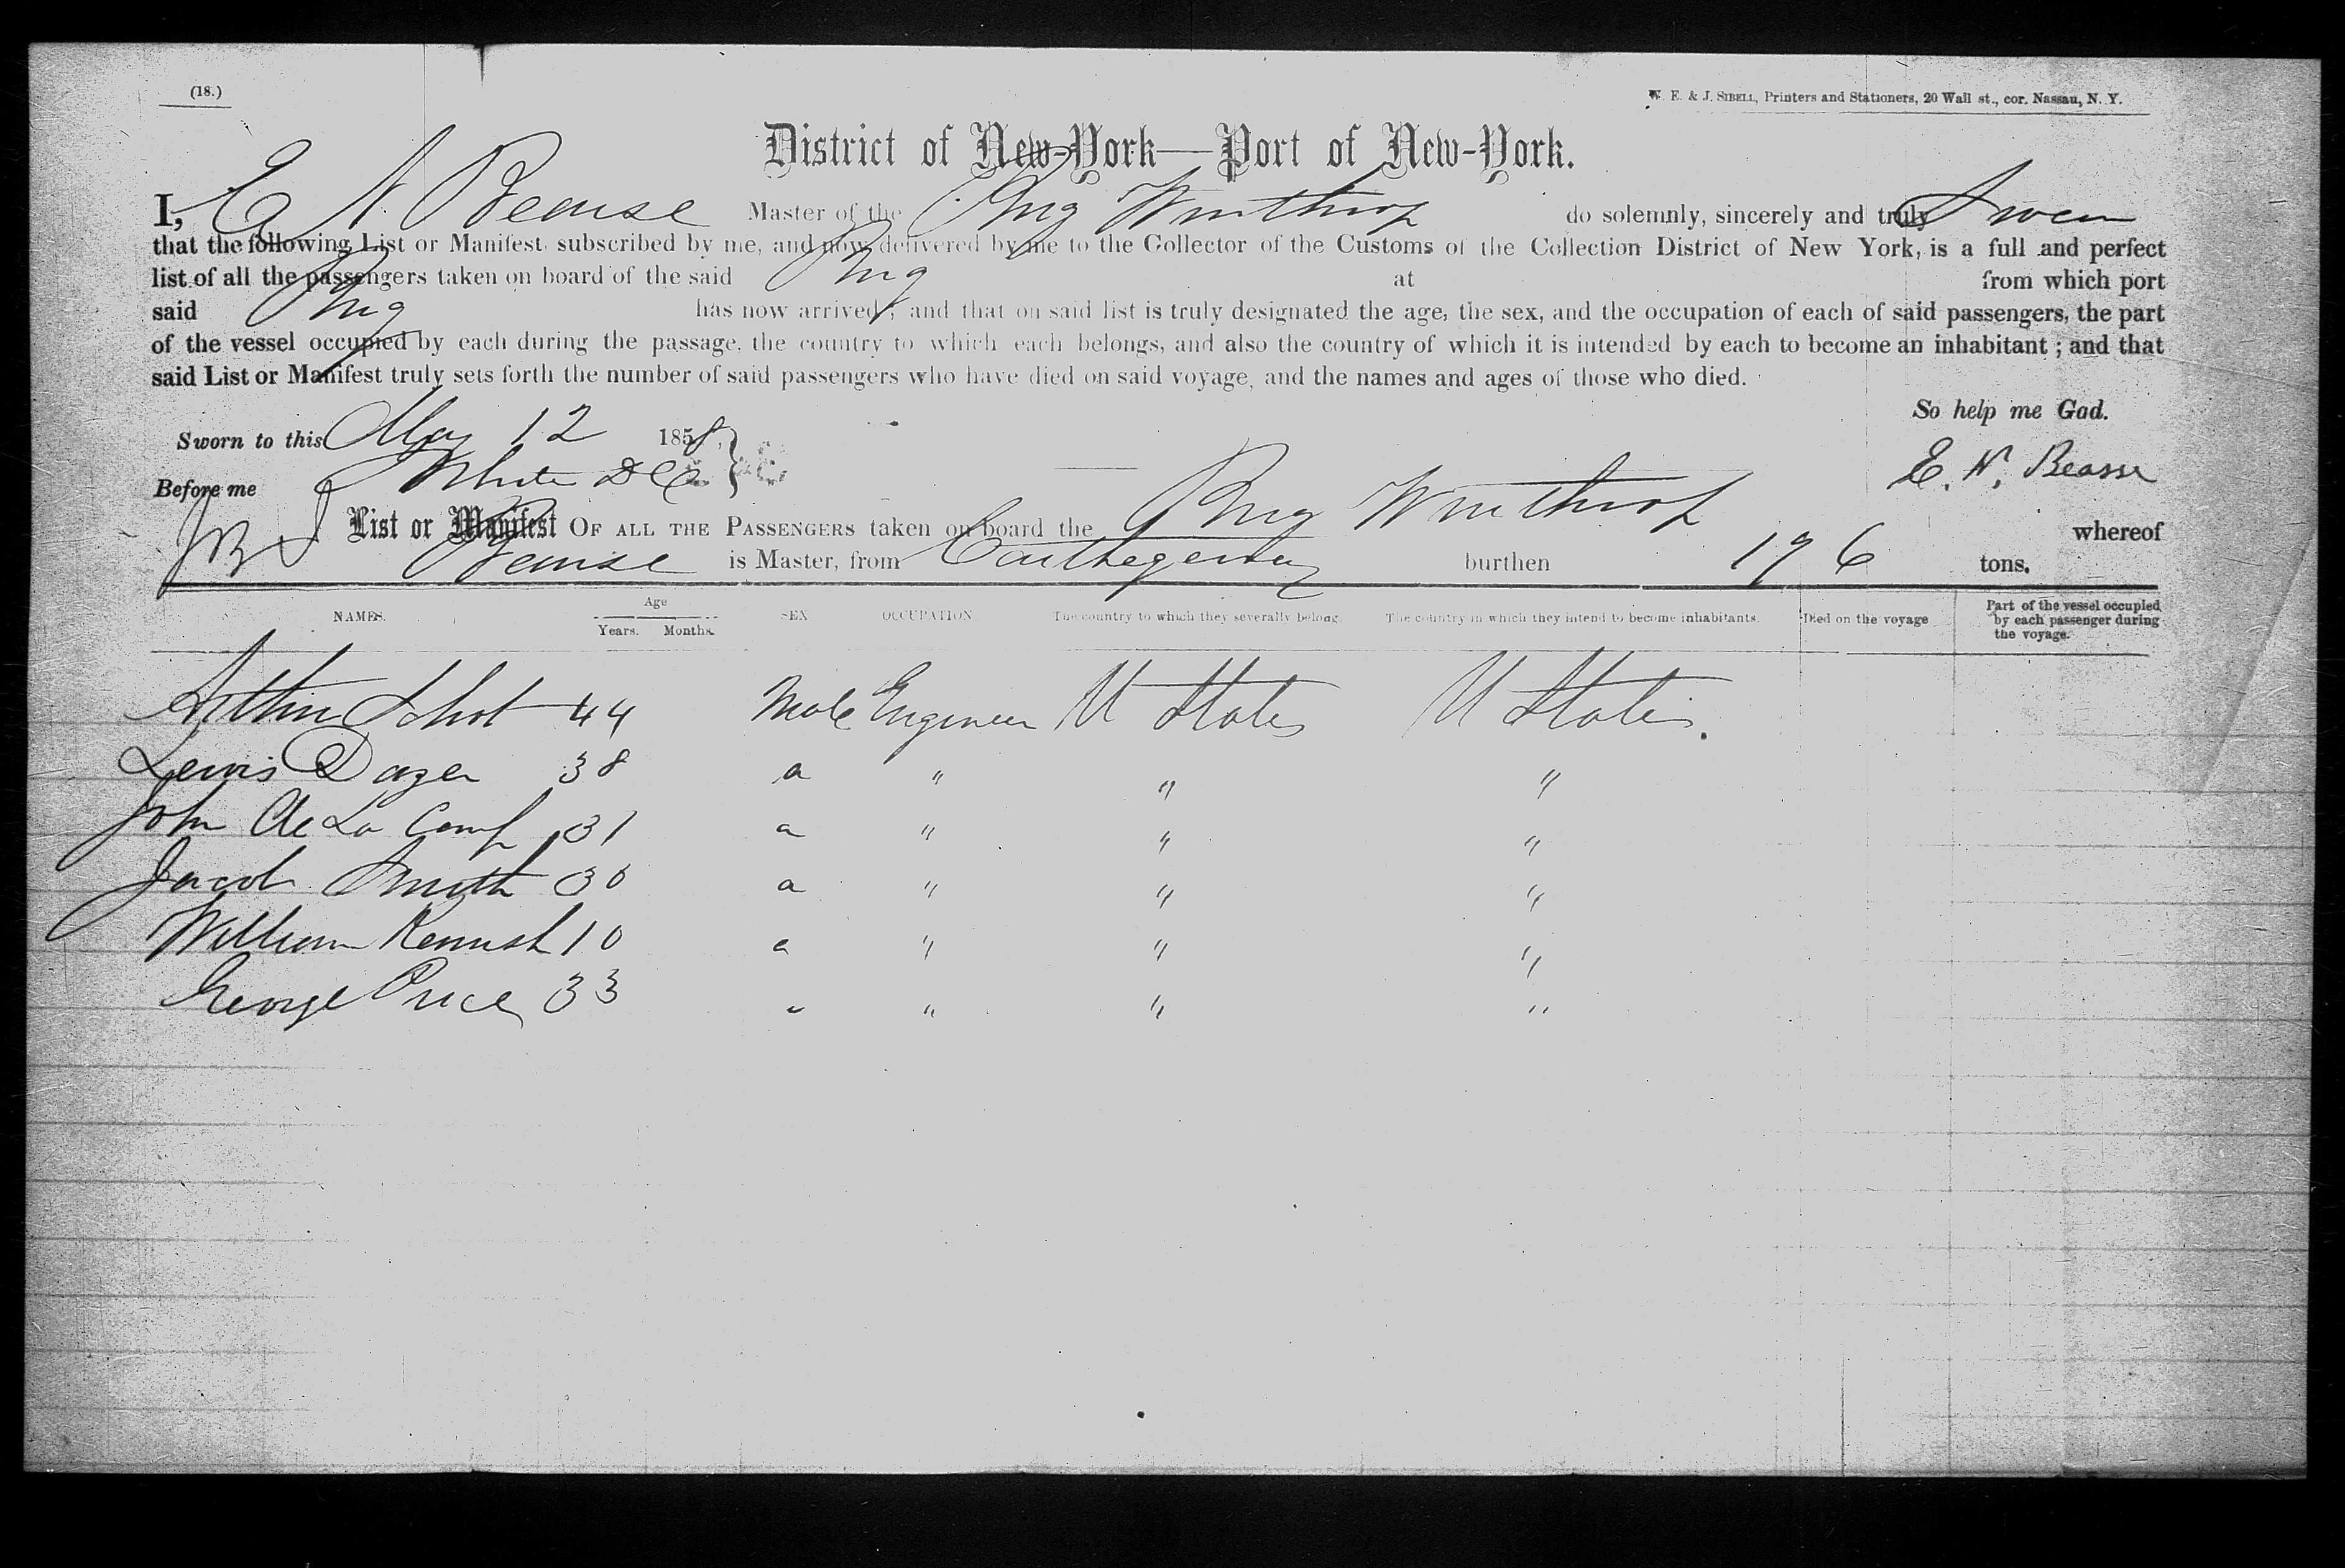 (18.)
W. E. & J. SIBELL, Printers and Stationers, 20 Wall st., cor. Nassau, N. Y.
District of New-York—Port of New-York.
I, E N Bearse Master of the Brig Winthrop do solemnly, sincerely and truly Swear
that the following List or Manifest subscribed by me, and now delivered by me to the Collector of the Customs of the Collection District of New York, is a full and perfect
list of all the passengers taken on board of the said Brig at from which port
said Brig has now arrived; and that on said list is truly designated the age, the sex, and the occupation of each of said passengers, the part
of the vessel occupied by each during the passage, the country to which each belongs, and also the country of which it is intended by each to become an inhabitant; and that
said List or Manifest truly sets forth the number of said passengers who have died on said voyage, and the names and ages of those who died.
So help me God.
Sworn to this May 12 1858,
Before me White
E. N. Bearse
List or Manifest OF ALL THE PASSENGERS taken on board the Brig Winthrop whereof
Bearse is Master, from Carthegena burthen 196 tons.
NAMES. Age Years. Months. SEX OCCUPATION The country to which they severally belong. The country in which they intend to become inhabitants. Died on the voyage Part of the vessel occupied by each passenger during the voyage.
Arthur Schot 44 Male Engineer U States U States.
Lewis Dazen 38 " " " "
John De La Camp 31 " " " "
Jacob Smith 30 " " " "
William Kennish 10 " " " "
George Price 33 " " " "